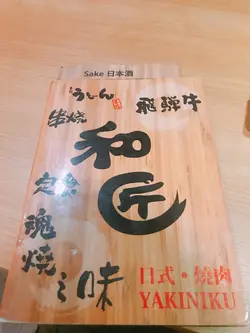 Sake 日本酒
うどん
串烧
飛騨牛
和匠
定食
魂焼之味
日式·燒肉
YAKINIKU